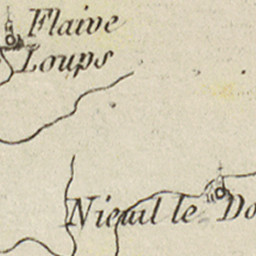 Flaive
Loups
Nieuil le Do